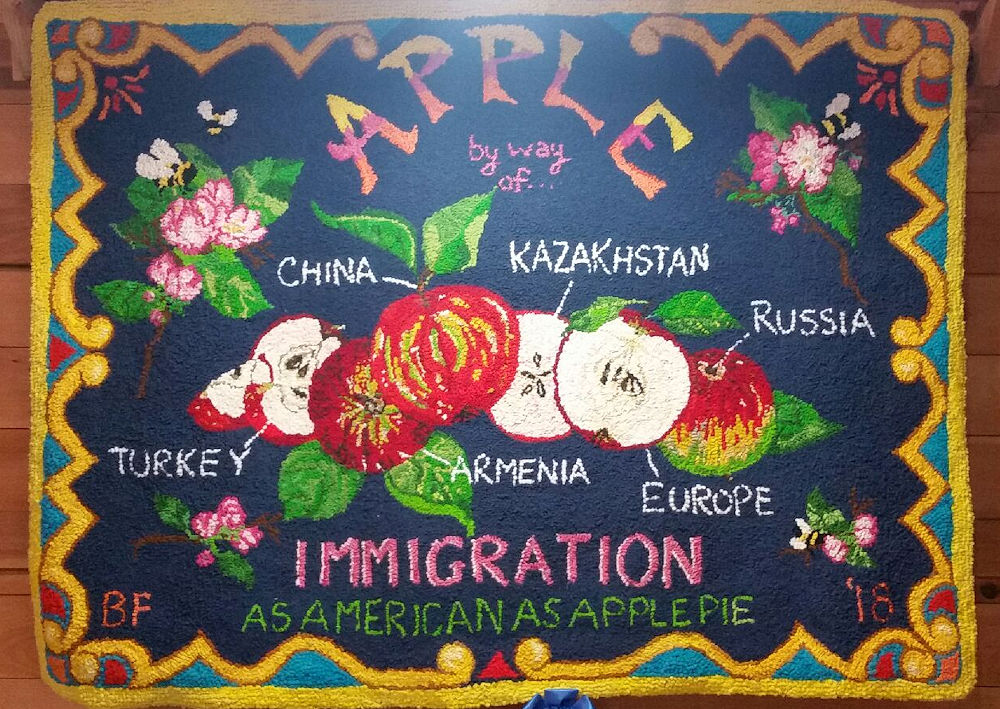 APPLE
by way
of...
CHINA
KAZAKHSTAN
RUSSIA
TURKEY
ARMENIA
EUROPE
IMMIGRATION
AS AMERICAN AS APPLE PIE
BF
'18